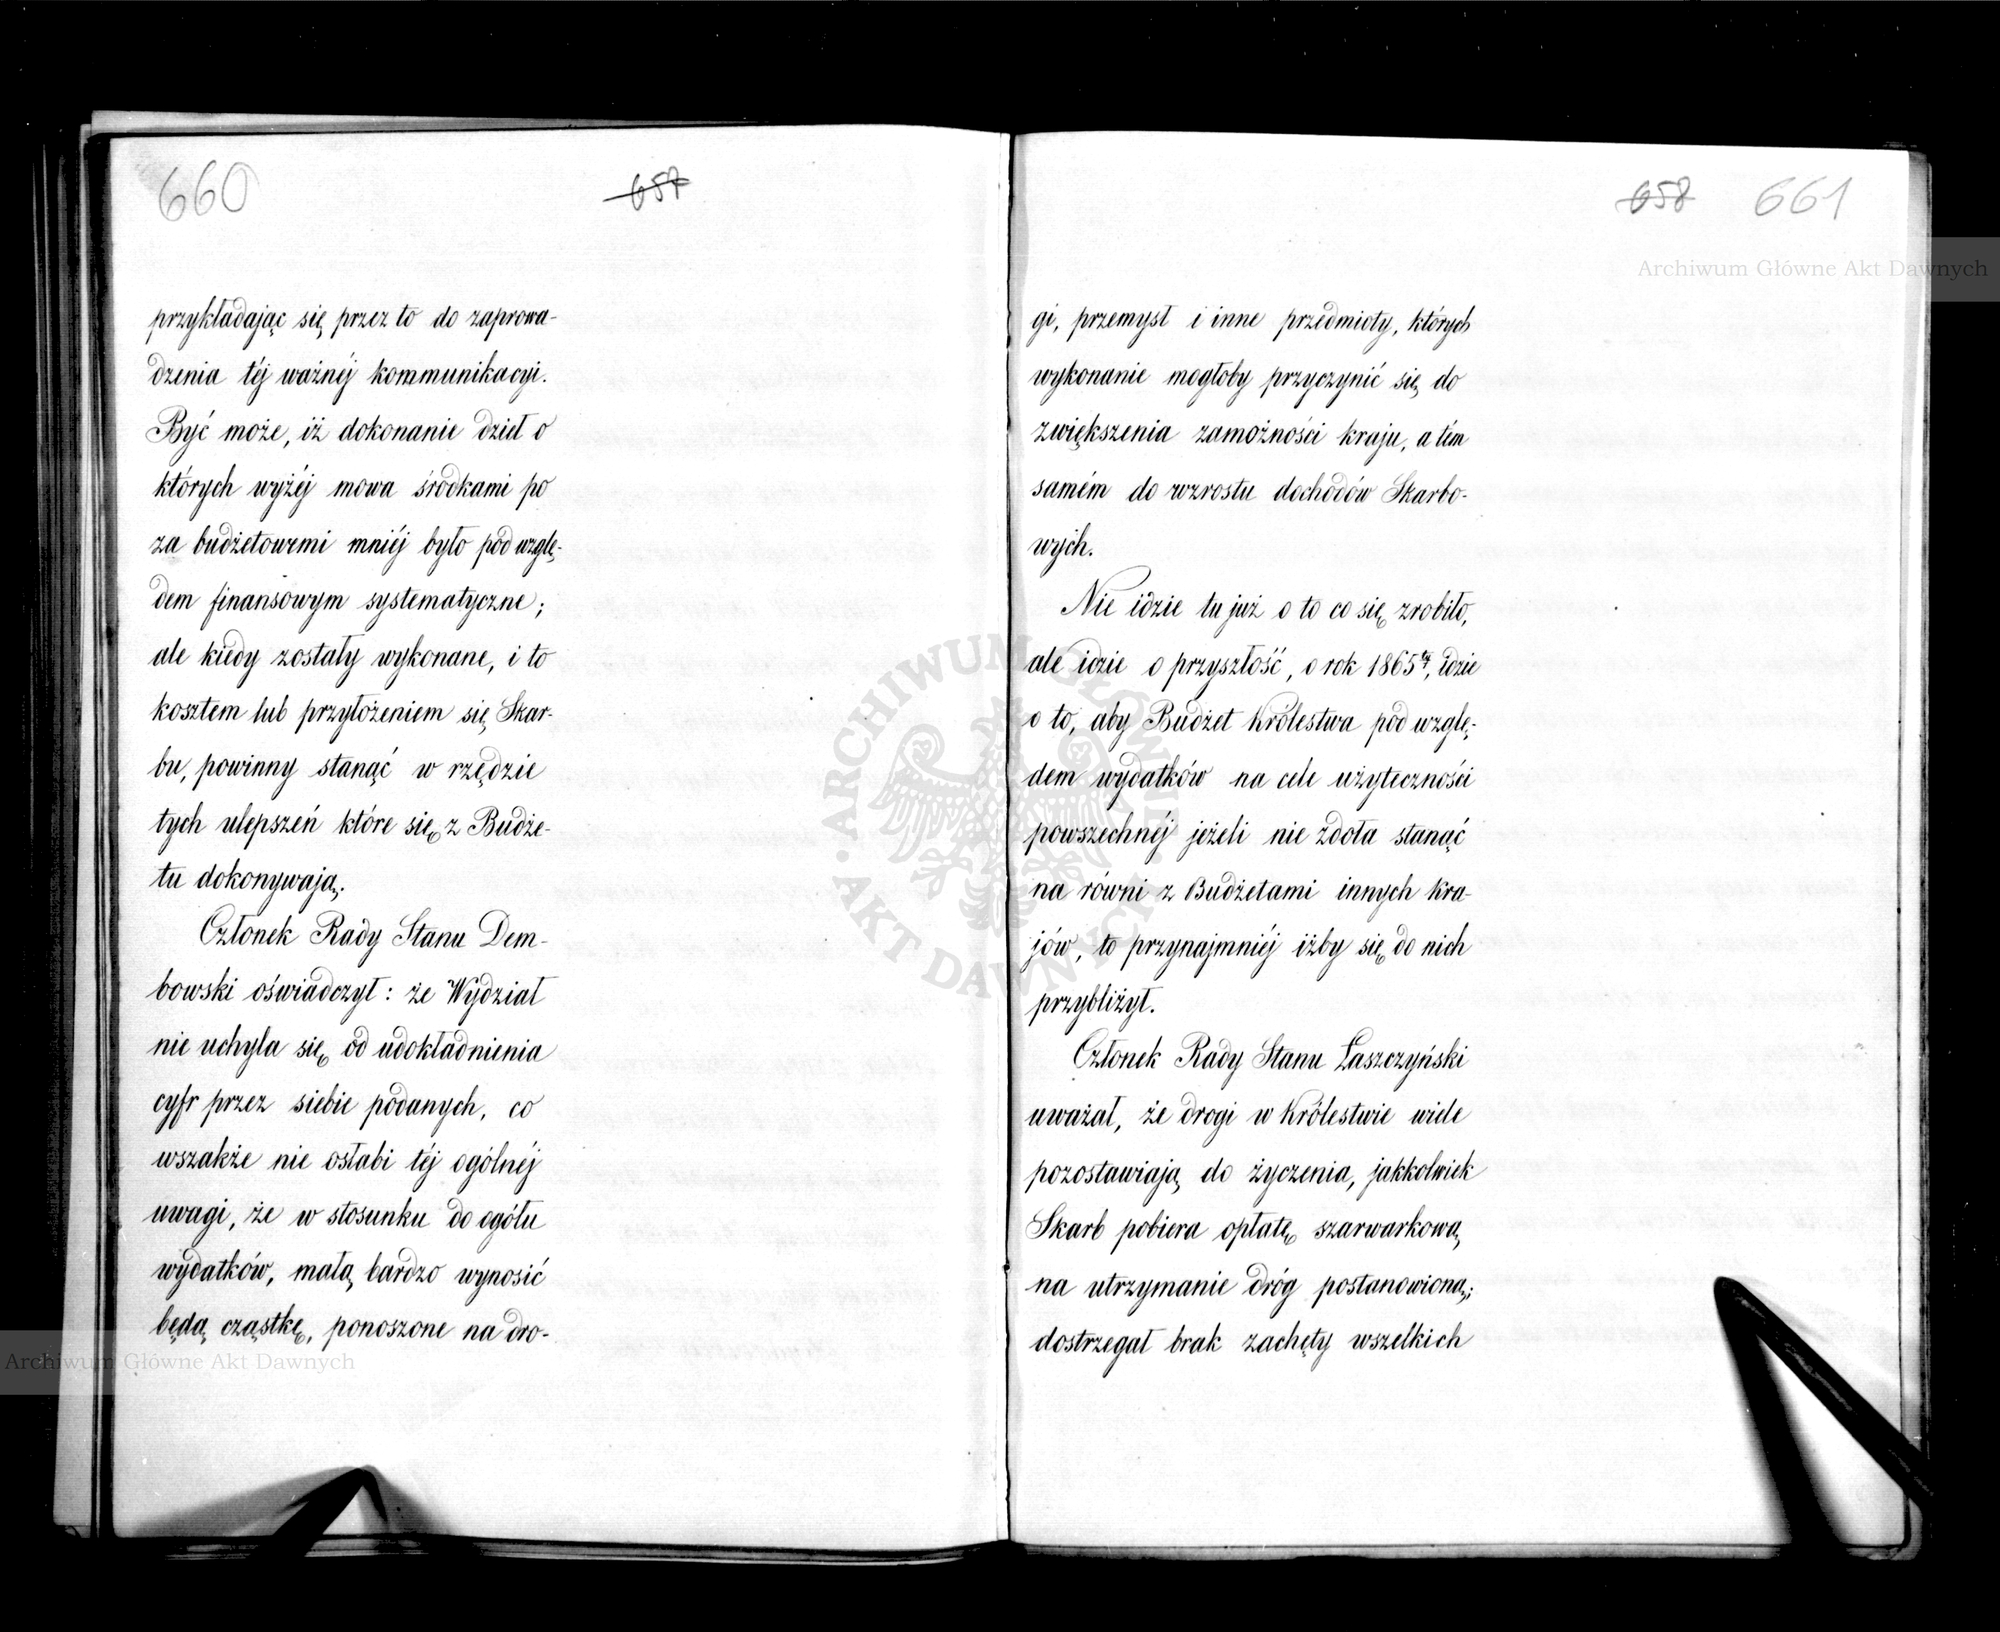 660
657
przykładając się przez to do zaprowa-
dzenia téj ważnéj kommunikacyi.
Być może, iż dokonanie dzieł o
których wyżéj mowa środkami po
za budżetowemi mniéj było pod wzglę-
dem finansowym systematyczne;
ale kiedy zostały wykonane, i to
kosztem lub przyłożeniem się Skar-
bu, powinny stanąć w rzędzie
tych ulepszeń które się z Budże-
tu dokonywają.
Członek Rady Stanu Dem-
bowski oświadczył: że Wydział
nie uchyla się od udokładnienia
cyfr przez siebie podanych, co
wszakże nie osłabi téj ogólnéj
uwagi, że w stosunku do ogółu
wydatków, małą bardzo wynosić
będą cząstkę, ponoszone na dro-
658 661
gi, przemysł i inne przedmioty, których
wykonanie mogłoby przyczynić się do
zwiększenia zamożności kraju, a tém
samém do wzrostu dochodów Skarbo-
wych.
Nie idzie tu już o to co się zrobiło,
ale idzie o przyszłość, o rok 1865ty, idzie
o to, aby Budżet Królestwa pod wzglę-
dem wydatków na cele użyteczności
powszechnéj jeżeli nie zdoła stanąć
na równi z Budżetami innych kra-
jów, to przynajmniéj iżby się do nich
przybliżył.
Członek Rady Stanu Łaszczyński
uważał, że drogi w Królestwie wiele
pozostawiają do życzenia, jakkolwiek
Skarb pobiera opłatę szarwarkową,
na utrzymanie dróg postanowioną;
dostrzegał brak zachęty wszelkich
Archiwum Główne Akt Dawnych
ARCHIWUM GŁÓWNE AKT DAWNYCH
Archiwum Główne Akt Dawnych